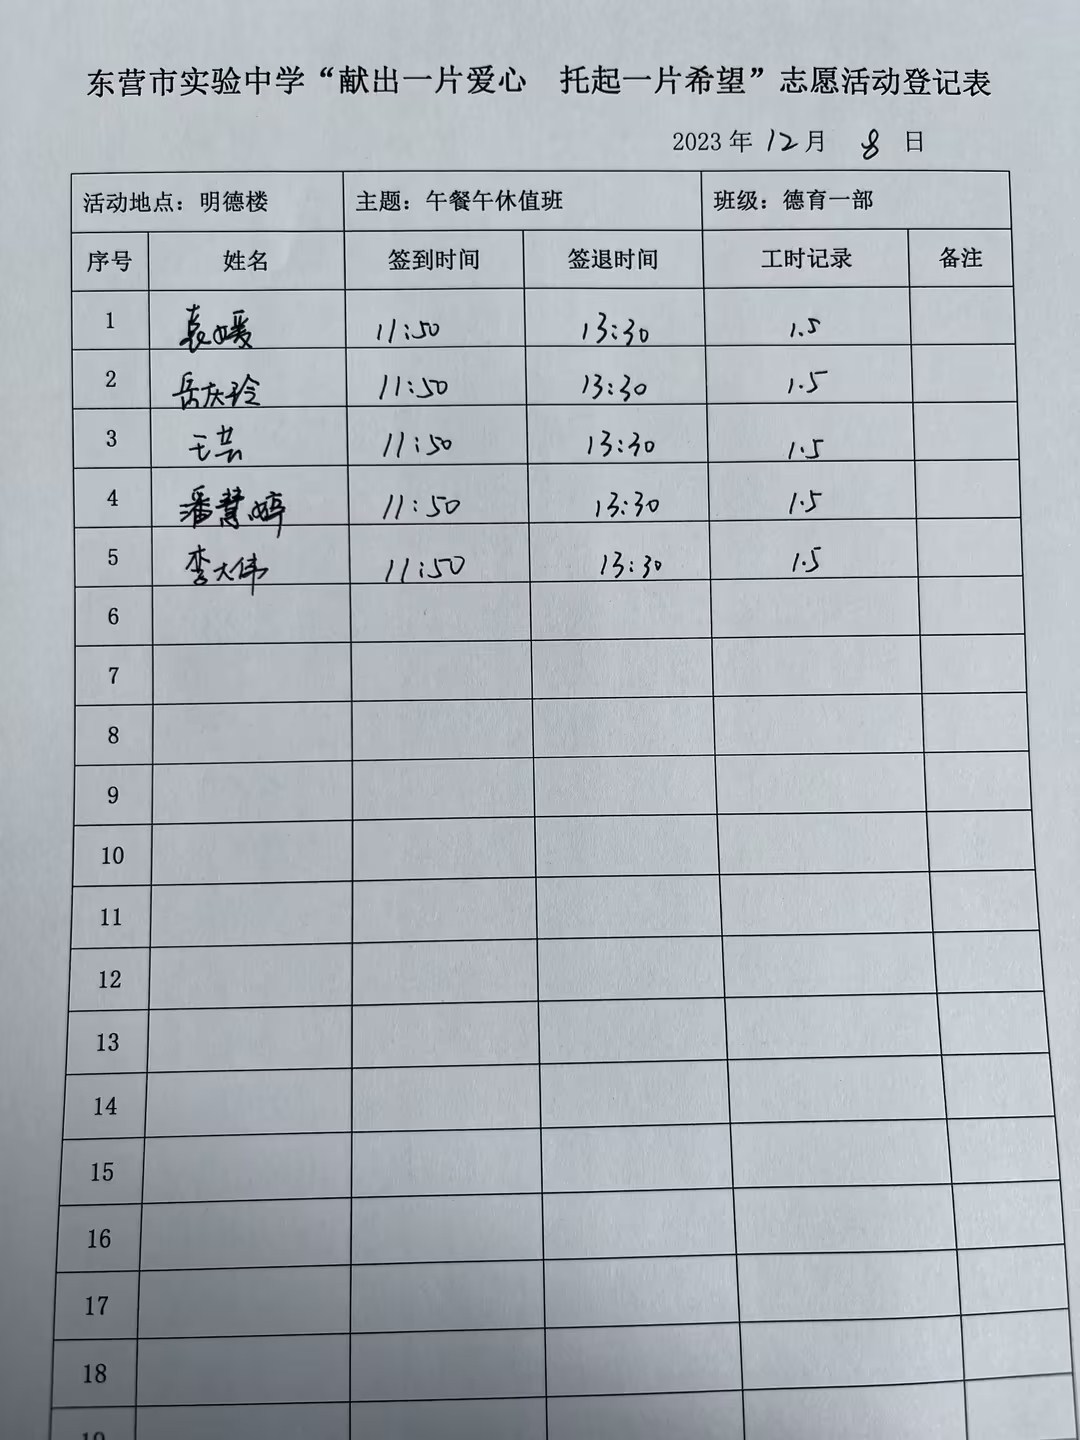 东营市实验中学“献出一片爱心 托起一片希望”志愿活动登记表
2023 年 12 月 8 日
活动地点：明德楼 主题：午餐午休值班 班级：德育一部
序号 姓名 签到时间 签退时间 工时记录 备注
1 袁媛 11:50 13:30 1.5
2 岳庆玲 11:50 13:30 1.5
3 王芸 11:50 13:30 1.5
4 潘慧婷 11:50 13:30 1.5
5 李大伟 11:50 13:30 1.5
6
7
8
9
10
11
12
13
14
15
16
17
18
19